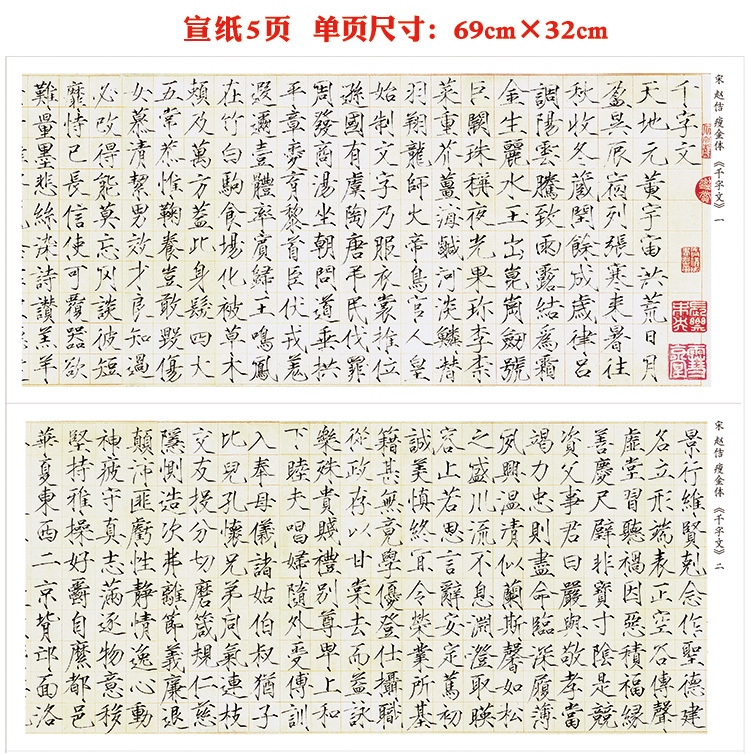 宣纸5页 单页尺寸：69cm×32cm
宋 赵佶 瘦金体 《千字文》 一
千字文
天地元黄宇宙洪荒日月
盈昃辰宿列張寒来暑往
秋收冬藏閏餘成歲律吕
調陽雲騰致雨露結為霜
金生麗水玉出崑崗劒號
巨闕珠稱夜光果珍李柰
菜重芥薑海鹹河淡鱗潜
羽翔龍師火帝鳥官人皇
始制文字乃服衣裳推位
遜國有虞陶唐弔民伐罪
周發商湯坐朝問道垂拱
平章愛育黎首臣伏戎羌
遐邇壹體率賓歸王鳴鳳
在竹白駒食場化被草木
賴及萬方蓋此身髮四大
五常恭惟鞠養豈敢毀傷
女慕清絜男效才良知過
必改得能莫忘罔談彼短
靡恃己長信使可覆器欲
難量墨悲絲染詩讚羔羊
宋 赵佶 瘦金体 《千字文》 二
景行維賢剋念作聖德建
名立形端表正空谷傳聲
虚堂習聽禍因惡積福緣
善慶尺璧非寶寸陰是競
資父事君曰嚴與敬孝當
竭力忠則盡命臨深履薄
夙興温凊似蘭斯馨如松
之盛川流不息淵澄取暎
容止若思言辭安定篤初
誠美慎終宜令榮業所基
籍甚無竟學優登仕攝職
從政存以甘棠去而益詠
樂殊貴賤禮别尊卑上和
下睦夫唱婦隨外受傅訓
入奉母儀諸姑伯叔猶子
比兒孔懷兄弟同氣連枝
交友投分切磨箴規仁慈
隱惻造次弗離節義廉退
顛沛匪虧性静情逸心動
神疲守真志滿逐物意移
堅持雅操好爵自縻都邑
華夏東西二京背邙面洛